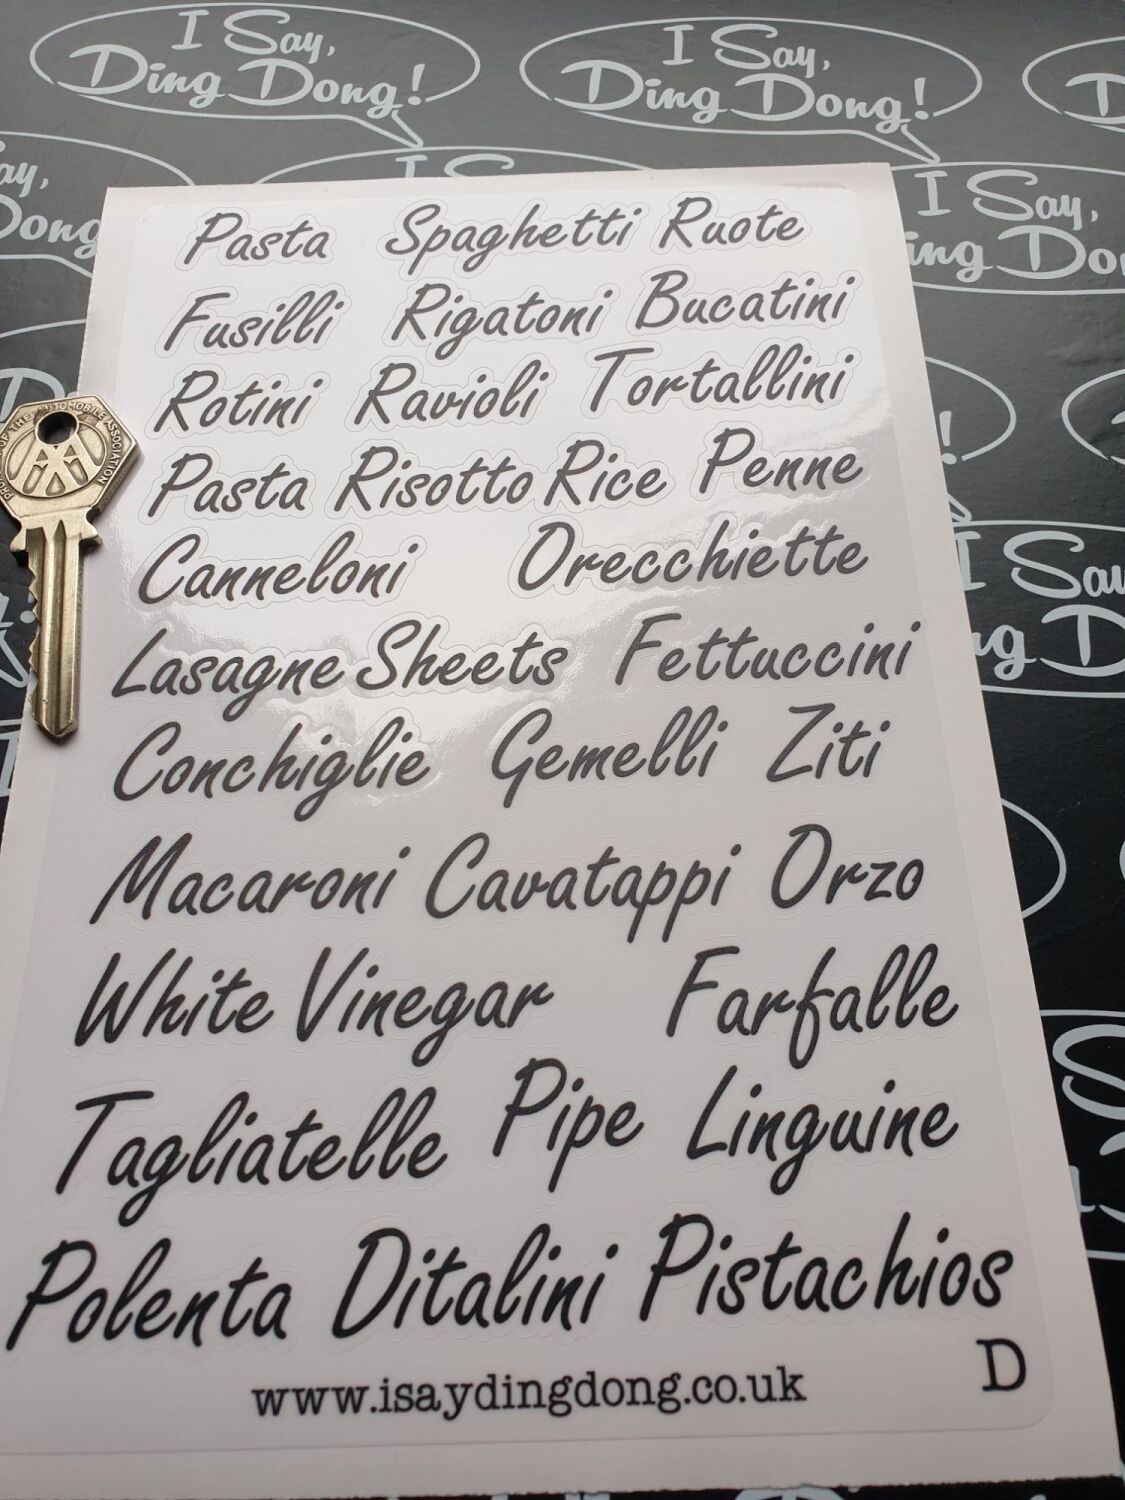 I Say,
Ding Dong!
I Say,
Ding Dong!
Pasta Spaghetti Ruote
Fusilli Rigatoni Bucatini
Rotini Ravioli Tortallini
Pasta Risotto Rice Penne
Canneloni Orecchiette
Lasagne Sheets Fettuccini
Conchiglie Gemelli Ziti
Macaroni Cavatappi Orzo
White Vinegar Farfalle
Tagliatelle Pipe Linguine
Polenta Ditalini Pistachios
www.isaydingdong.co.uk
D
I Say,
OF THE AUTOMOBILE ASSOCIATION
AA